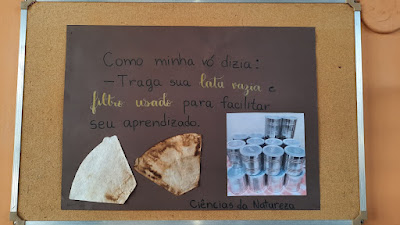 Como minha vó dizia:
— Traga sua lata vazia e
filtro usado para facilitar
seu aprendizado.
Ciências da Natureza